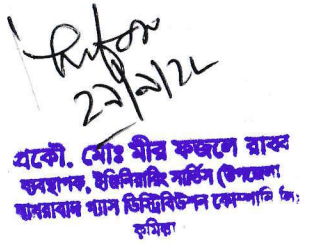 ২৯/৯/২২
প্রকৌ. মোঃ মীর ফজলে রাব্ব
ব্যবস্থাপক, ইঞ্জিনিয়ারিং সার্ভিস (উপজেলা
বাখরাবাদ গ্যাস ডিস্ট্রিবিউশন কোম্পানি লিঃ
কুমিল্লা